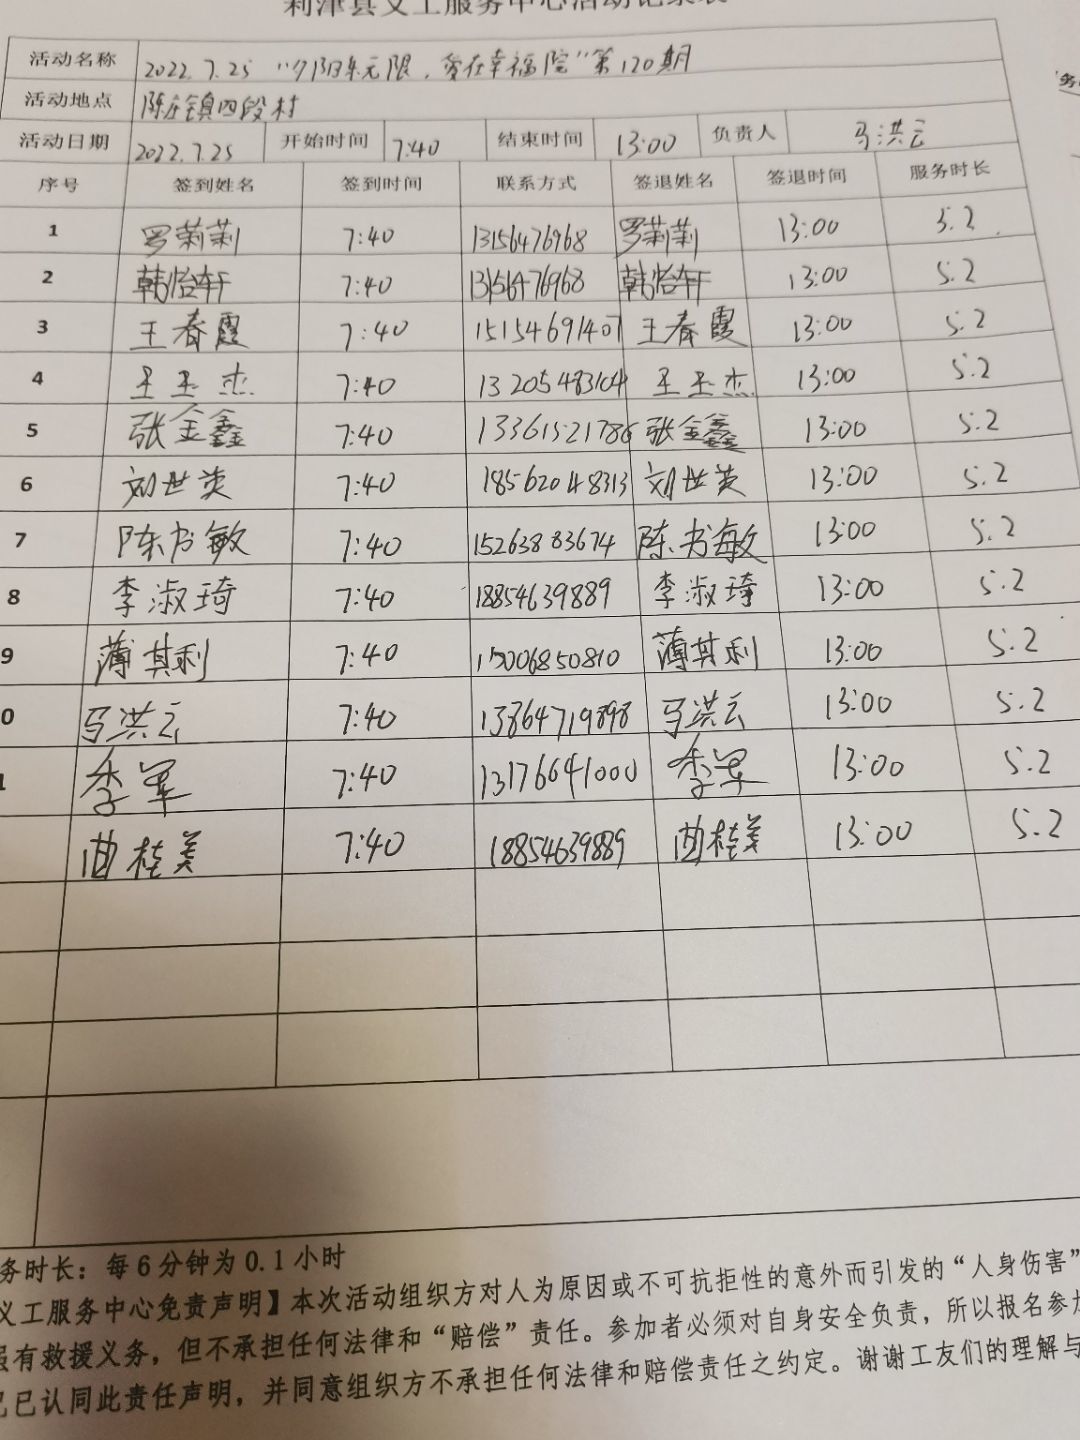 利津县义工服务中心活动记录表
活动名称 2022.7.25 “夕阳无限，爱在幸福院”第120期
活动地点 陈庄镇四段村
活动日期 2022.7.25 开始时间 7:40 结束时间 13:00 负责人 马洪云
序号 签到姓名 签到时间 联系方式 签退姓名 签退时间 服务时长
1 罗莉莉 7:40 13156476968 罗莉莉 13:00 5.2
2 韩怡轩 7:40 13156476968 韩怡轩 13:00 5.2
3 王春霞 7:40 15154691407 王春霞 13:00 5.2
4 王玉杰 7:40 13205483104 王玉杰 13:00 5.2
5 张金鑫 7:40 13361521786 张金鑫 13:00 5.2
6 刘世英 7:40 18562048313 刘世英 13:00 5.2
7 陈书敏 7:40 15263883674 陈书敏 13:00 5.2
8 李淑琦 7:40 18854639889 李淑琦 13:00 5.2
9 薄其利 7:40 15006850810 薄其利 13:00 5.2
0 马洪云 7:40 13864719898 马洪云 13:00 5.2
1 李军 7:40 13176641000 李军 13:00 5.2
曲桂美 7:40 18854639889 曲桂美 13:00 5.2
务时长：每6分钟为0.1小时
义工服务中心免责声明】本次活动组织方对人为原因或不可抗拒性的意外而引发的“人身伤害”
有救援义务，但不承担任何法律和“赔偿”责任。参加者必须对自身安全负责，所以报名参加
已认同此责任声明，并同意组织方不承担任何法律和赔偿责任之约定。谢谢工友们的理解与